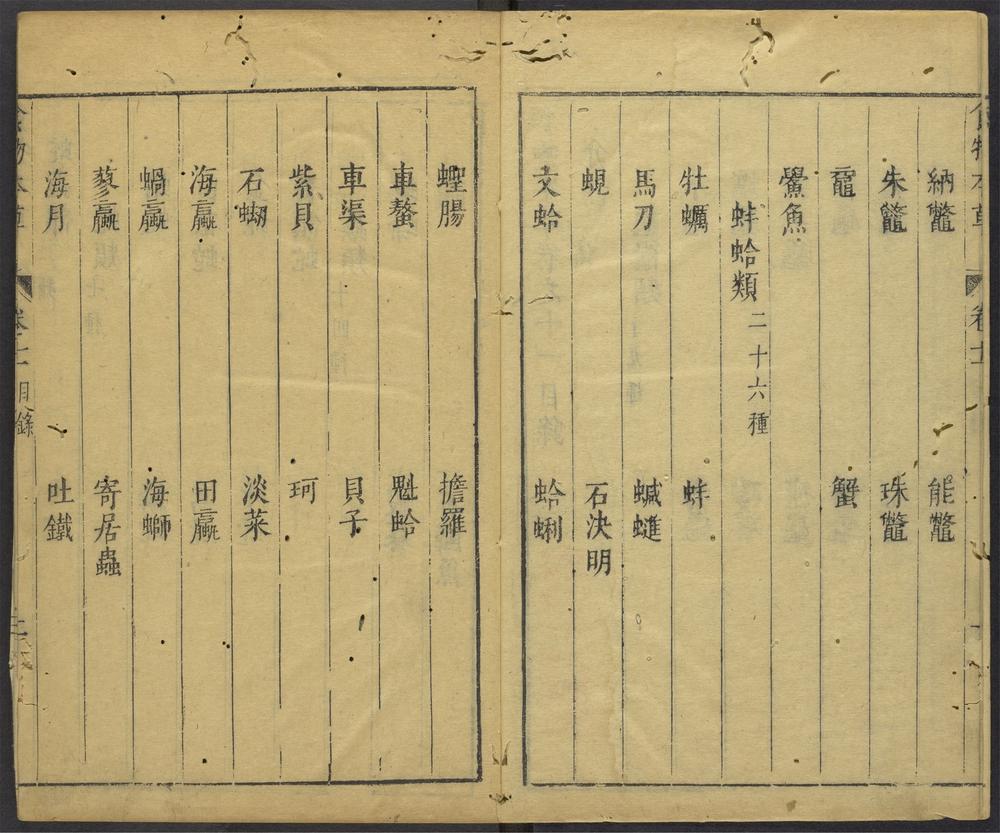 食物本草 卷十一
納鼈 能鼈
朱鼈 珠鼈
黿 蟹
鱟魚
蚌蛤類二十六種
牡蠣 蚌
馬刀 蝛𧋛
蜆 石決明
文蛤 蛤蜊
蟶腸 擔羅
車螯 魁蛤
車渠 貝子
紫貝 珂
石𧉧 淡菜
海蠃 田蠃
蝸蠃 海螄
蓼蠃 寄居蟲
海月 吐鐵
食物本草 卷十一 目錄